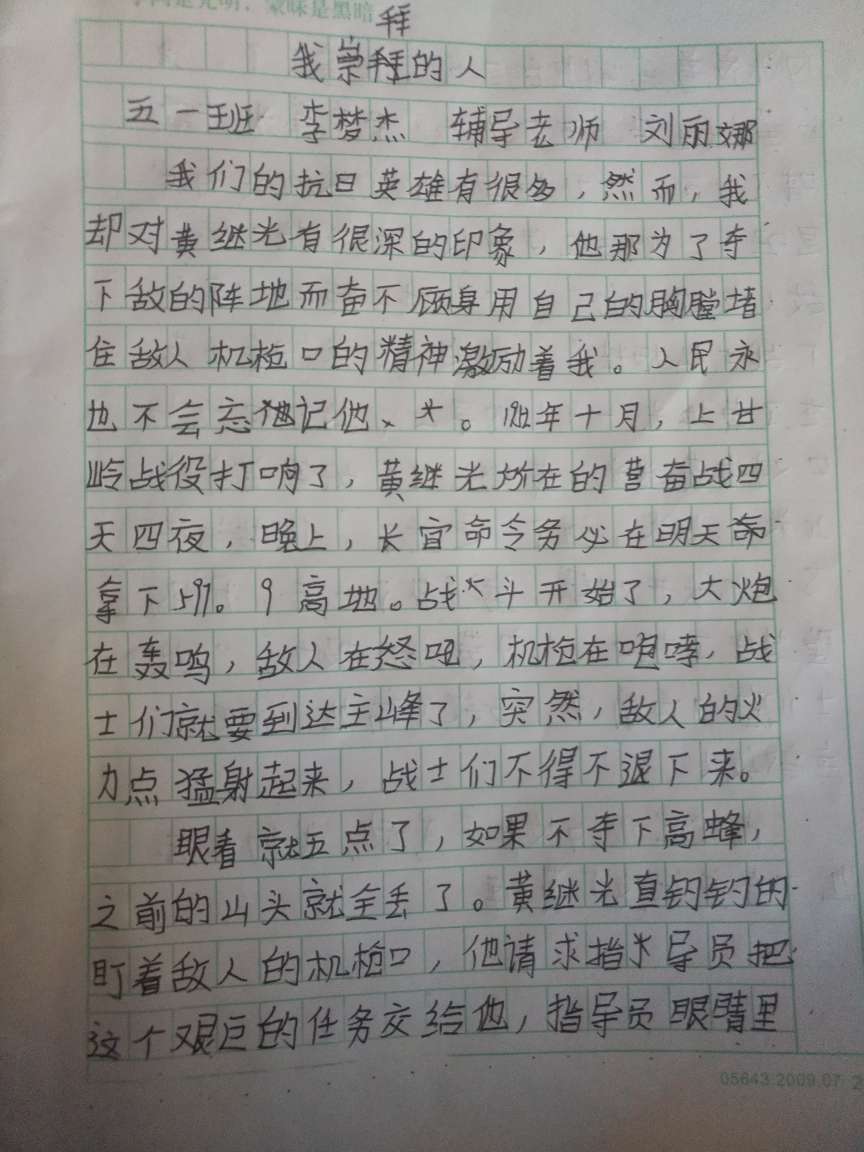 蒙昧是黑暗
拜
我崇拜的人
五一班 李梦杰 辅导老师 刘丽娜
我们的抗日英雄有很多，然而，我
却对黄继光有很深的印象，他那为了夺
下敌的阵地而奋不顾身用自己的胸膛堵
住敌人机枪口的精神激励着我。人民永
也不会忘记他、。1952年十月，上甘
岭战役打响了，黄继光所在的营奋战四
天四夜，晚上，长官命令务必在明天前
拿下597。9高地。战斗开始了，大炮
在轰鸣，敌人在怒吼，机枪在咆哮，战
士们就要到达主峰了，突然，敌人的火
力点猛射起来，战士们不得不退下来。
眼看就五点了，如果不夺下高蜂，
之前的山头就全丢了。黄继光直钓钓的
盯着敌人的机枪口，他请求指导员把
这个艰巨的任务交给他，指导员眼睛里
05643.2009.07